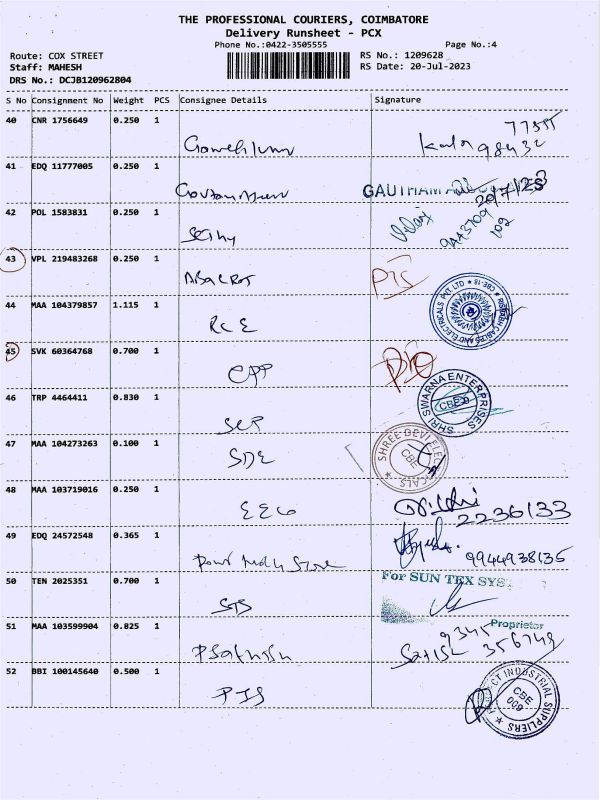 THE PROFESSIONAL COURIERS, COIMBATORE
Delivery Runsheet - PCX
Phone No.:0422-3505555 Page No.:4
Route: COX STREET RS No.: 1209628
Staff: MAHESH RS Date: 20-Jul-2023
DRS No.: DCJB120962804
S No Consignment No Weight PCS Consignee Details Signature
40 CNR 1756649 0.250 1
77555
98432
41 EDQ 11777005 0.250 1
GAUTHAM 20/7/23
42 POL 1583831 0.250 1
43 VPL 219483268 0.250 1
44 MAA 104379857 1.115 1 RCE
CABLES AND ELECTRICALS PVT. LTD CBE-18
45 SVK 60364768 0.700 1 CPP
46 TRP 4464411 0.830 1 SEP
SHRI SWARNA ENTERPRISES CBE-9
47 MAA 104273263 0.100 1 SDE
SHREE DEVI ELECTRICALS CBE
48 MAA 103719016 0.250 1
2236133
49 EDQ 24572548 0.365 1 Store
9944938135
50 TEN 2025351 0.700 1 STS
For SUN TEX SYS
Proprietor
51 MAA 103599904 0.825 1
9345
Satish 356749
52 BBI 100145640 0.500 1 PIS
INDUSTRIAL SUPPLIERS CBE 009